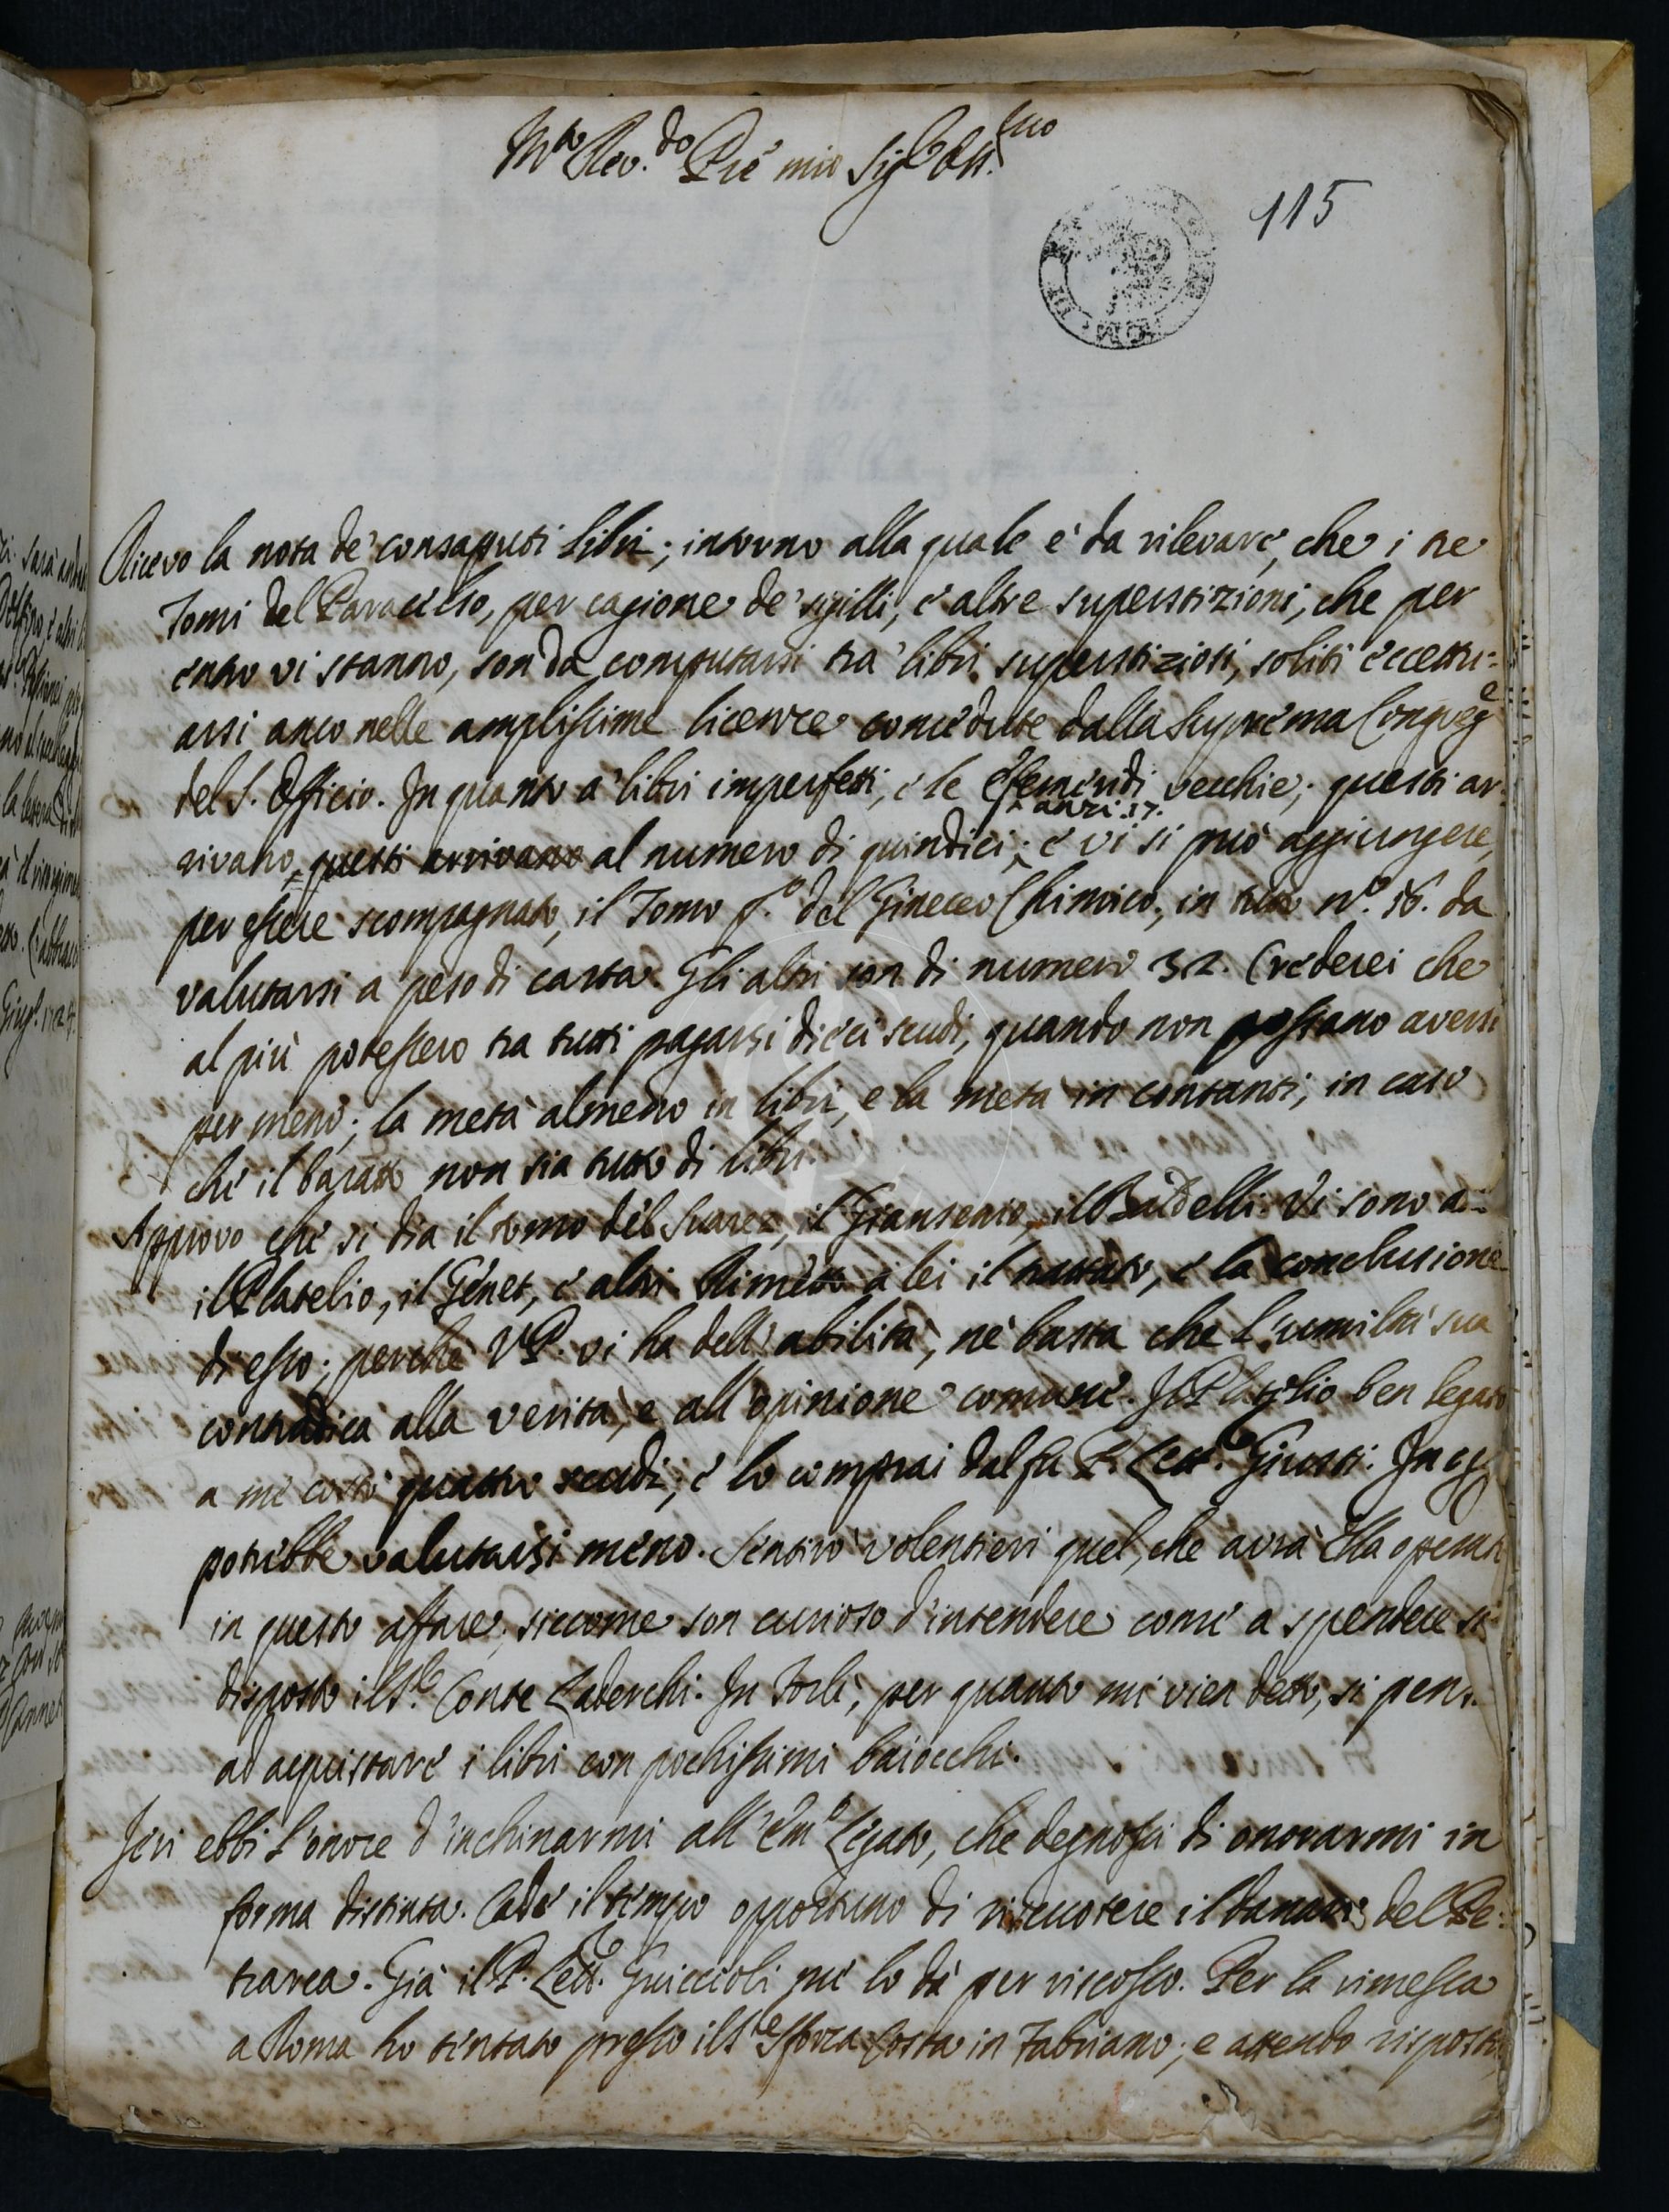 M.to Rev.do Pre mio Sig.e Oss.mo
115
Ricevo la nota de' consaputi libri; intorno alla quale è da rilevare, che i tre
Tomi del Paracelso, per cagione de' sigilli, e altre superstizioni, che per
entro vi stanno, son da computarsi tra' libri superstiziosi, soliti eccettu=
arsi anco nelle amplissime licenze concedute dalla Suprema Congreg.e
del S. Officio. In quanto a' libri imperfetti, e le efemeridi vecchie; questi ar=
anzi 17.
rivano questi arrivano al numero di quindici; e vi si può aggiungere,
per essere scompagnato, il Tomo p.o del Gineceo Chimico, in tutto n.o 18. da
valutarsi a peso di carta. Gli altri son di numero 32. Crederei che
al più potessero tra tutti pagarsi dieci scudi, quando non possano aversi
per meno; la metà almeno in libri, e la metà in contanti, in caso
che il baratto non sia tutto di libri.
Approvo che si dia il tomo del Suarez, il Giansenio, il Baldelli. Vi sono
il Platelio, il Genet, e altri. Rimetto a lei il trattato, e la conclusione
di esso; perchè V.P. vi ha dell'abilità, nè basta che l'umiltà sua
contradica alla verità, e all'opinione comune. Il Platelio ben legato
a me costò quattro scudi, e lo comprai dal fu P. Lett.e Giusti.
potrebbe valutarsi meno. Sentirò volentieri quel, che avrà Ella
in questo affare, siccome son curioso d'intendere come a spendere
disposto il S.e Conte Laderchi. In Forlì, per quanto mi vien detto, si
ad acquistare i libri con pochissimi baiocchi.
Jeri ebbi l'onore d'inchinarmi all'Em.o Legato, che degnossi di onorarmi in
forma distinta. Cade il tempo opportuno di riscuotere il danaro del Pe=
trarca. Già il P. Lett.e Guiccioli me lo dà per riscosso. Per la rimessa
a Roma ho tentato presso il S.e Sforza Costa in Fabriano; e attendo